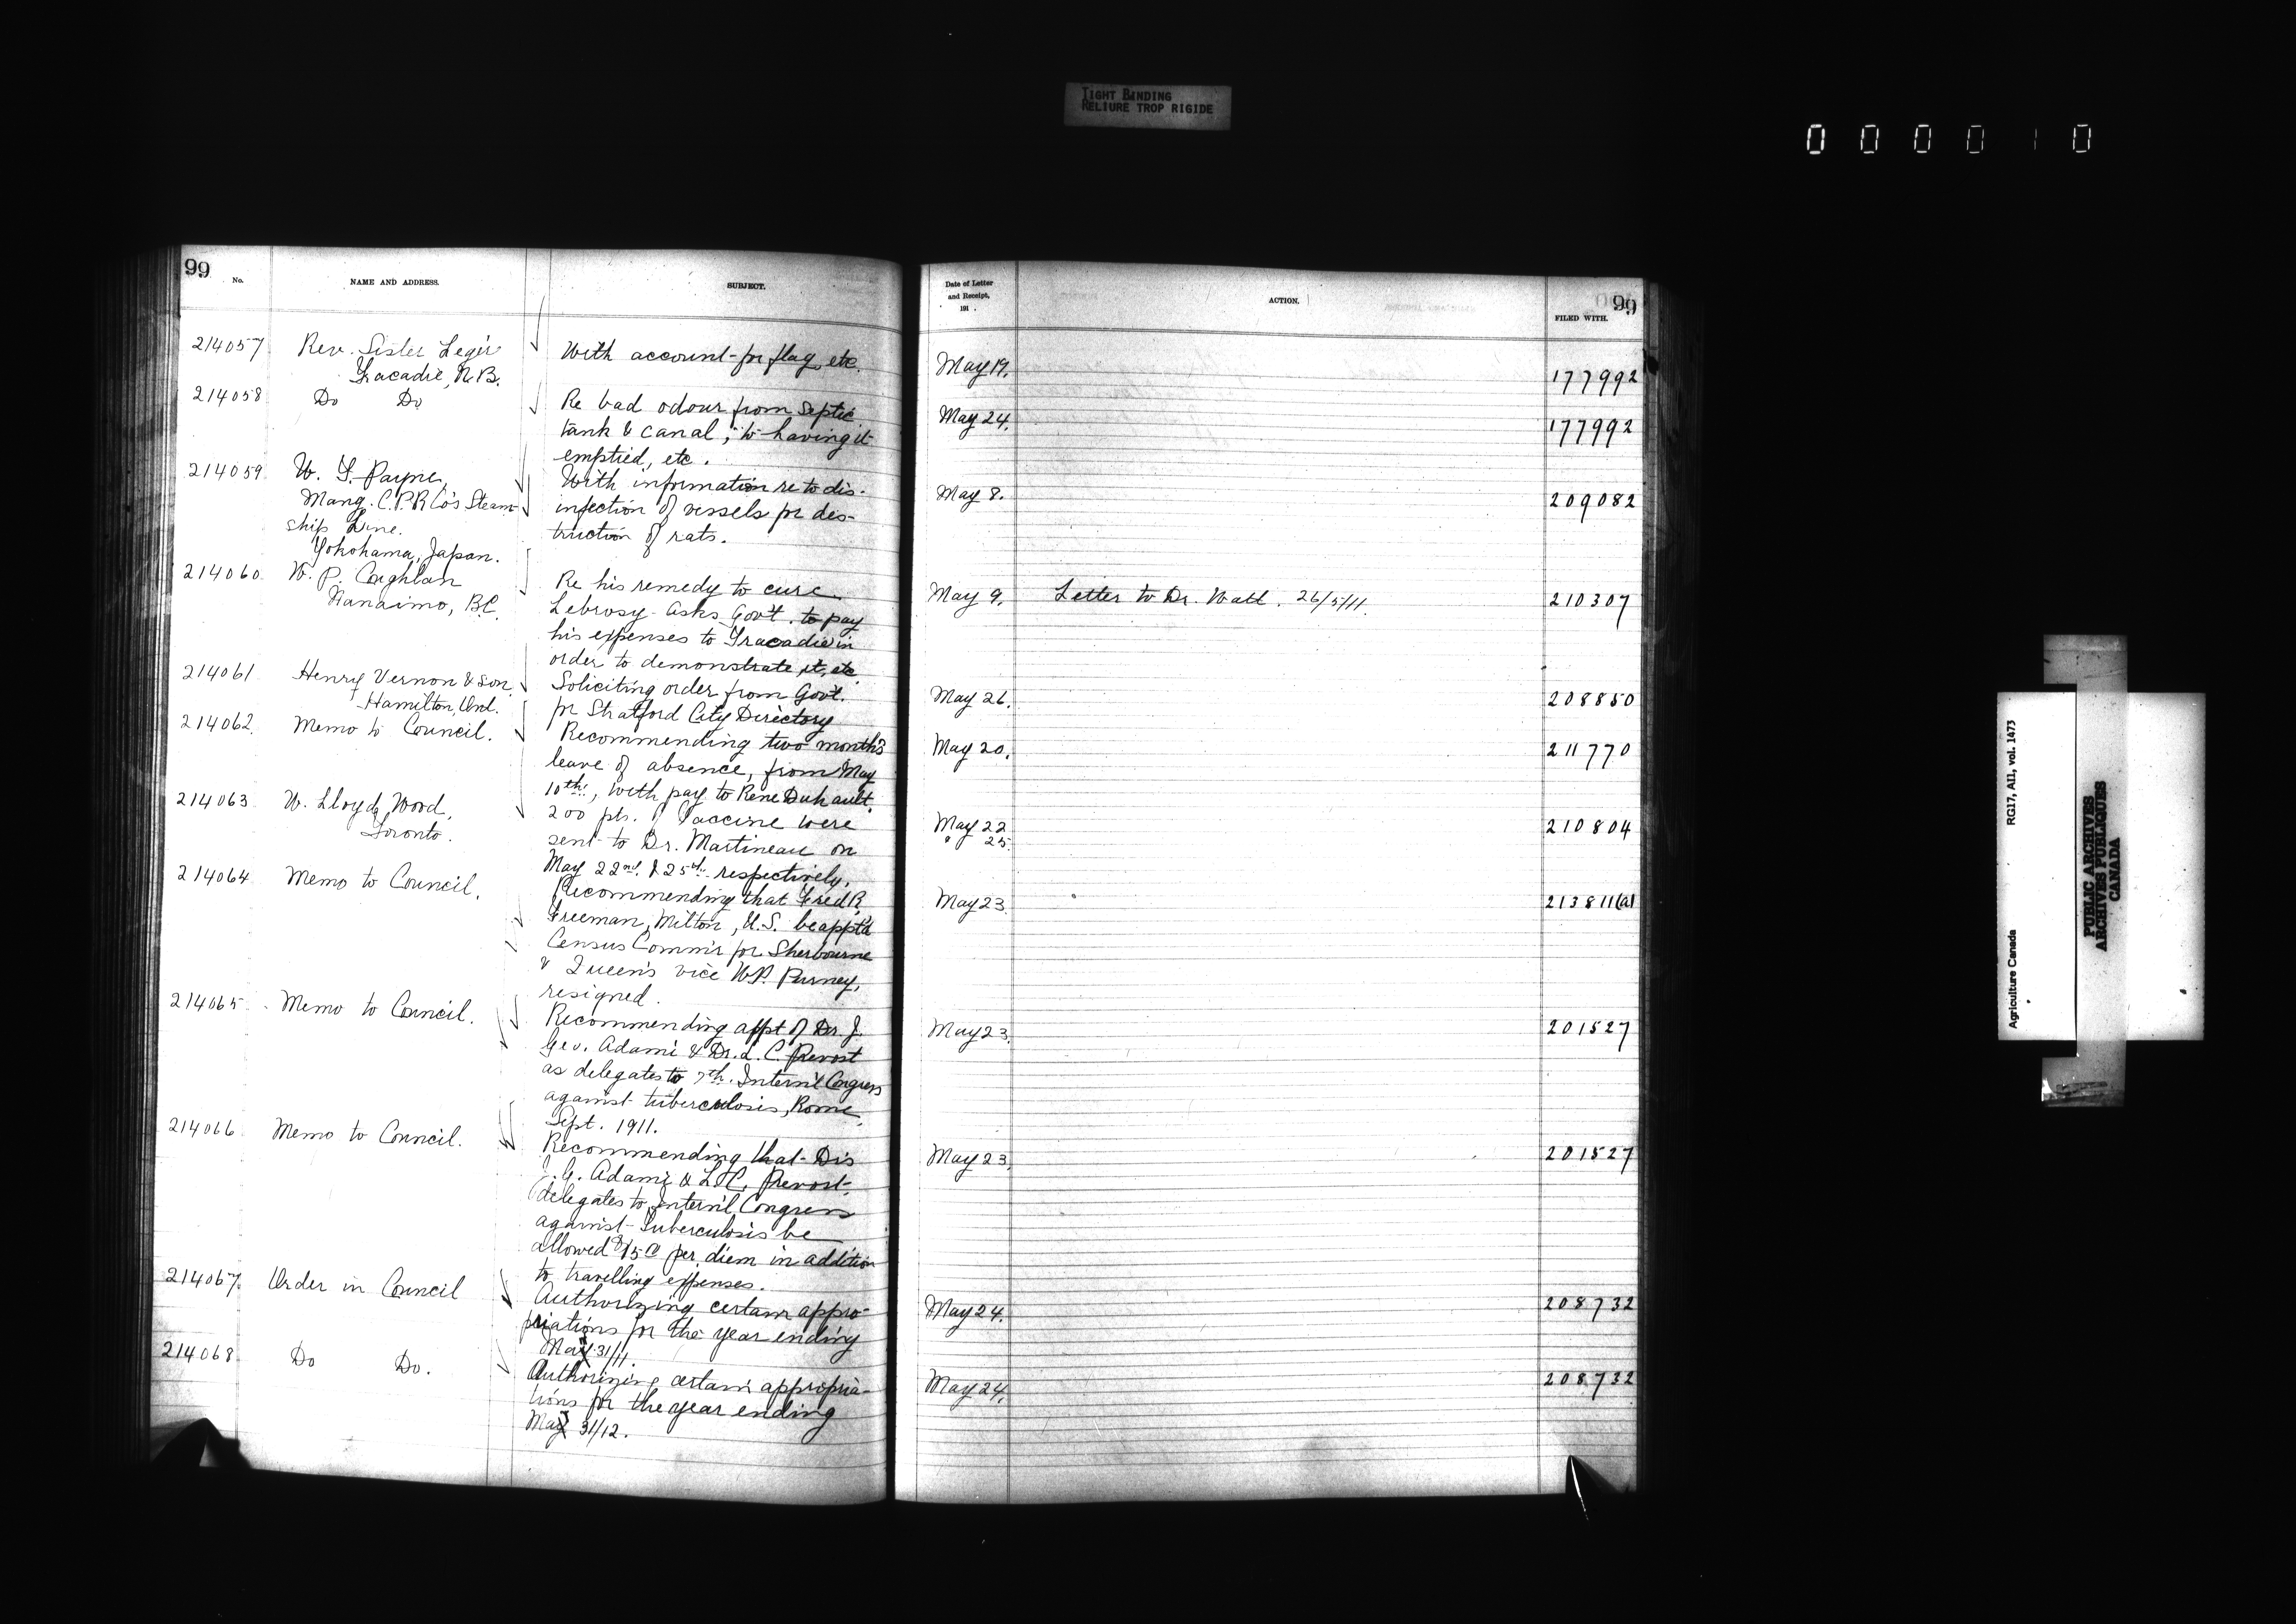 TIGHT BINDING
RELIURE TROP RIGIDE
000010
99
No.
NAME AND ADDRESS.
SUBJECT.
Date of Letter
and Receipt,
191 .
ACTION.
FILED WITH.
99
214057
Rev. Sister Legér
Tracadie, N.B.
With account for flag, etc.
May 19.
177992
214058
Do Do
Re bad odour from septic
tank & canal; to having it
emptied, etc.
May 24.
177992
214059
W. T. Payne,
Mang. C.P.R Co's Steam-
ship Line.
Yokohama, Japan.
With information re to dis-
infection of vessels for des-
truction of rats.
May 8.
209082
214060
W. P. Coughlan
Nanaimo, B.C.
Re his remedy to cure
Lebrosy. Asks Gov't. to pay
his expenses to Tracadie in
order to demonstrate it, etc
May 9.
Letter to Dr. Watt. 26/5/11.
210307
214061
Henry Vernon & Son,
Hamilton, Ont.
Soliciting order from Govt.
for Stratford City Directory
May 26.
208850
214062
Memo to Council.
Recommending two month's
leave of absence, from May
10th., with pay to Rene Duhault.
May 20.
211770
214063
W. Lloyd Wood,
Toronto.
200 pts. of Vaccine were
sent to Dr. Martineau on
May 22nd. & 25th. respectively.
May 22
" 25
210804
214064
Memo to Council.
Recommending that Fred R.
Freeman, Milton, N.S. be app't'd
Census Comm'r for Sherbourne
& Queen's vice W.P. Purney,
resigned.
May 23
213811(a)
214065
Memo to Council.
Recommending appt of Dr. J.
Geo. Adami & Dr. L. C. Prevost
as delegates to 7th. Intern'l Congress
against tuberculosis, Rome,
Sept. 1911.
May 23.
201527
214066
Memo to Council.
Recommending that Drs
J. G. Adami & L. C. Prevost
delegates to Intern'l Congress
against Tuberculosis be
allowed $15.00 per diem in addition
to travelling expenses.
May 23.
201527
214067
Order in Council
Authorizing certain appro-
priations for the year ending
Mar 31/11.
May 24.
208732
214068
Do Do.
Authorizing certain appropria-
tions for the year ending
Mar 31/12.
May 24.
208732
Agriculture Canada RG17, AII, vol. 1473
PUBLIC ARCHIVES
ARCHIVES PUBLIQUES
CANADA